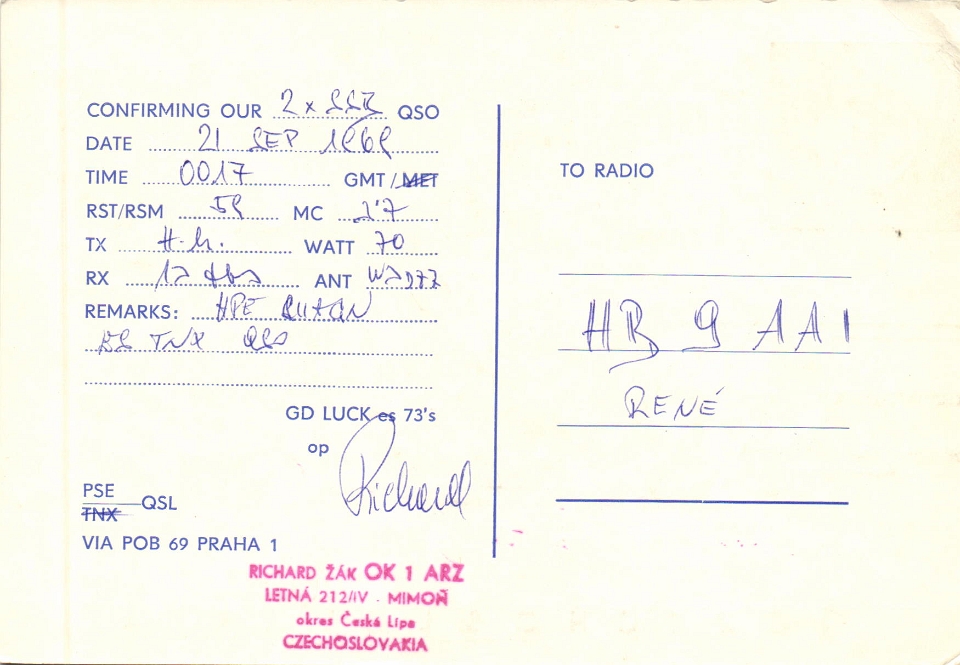 CONFIRMING OUR 2 x SSB QSO
DATE 21 SEP 1969
TIME 0017 GMT / MET
RST/RSM 59 MC
TX H.M. WATT 70
RX 12 ANT
REMARKS: HPE
ES TNX QSO
GD LUCK es 73's
op Richard
PSE
TNX QSL
VIA POB 69 PRAHA 1
RICHARD ŽÁK OK 1 ARZ
LETNÁ 212/IV - MIMOŇ
okres Česká Lípa
CZECHOSLOVAKIA
TO RADIO
HB 9 AAI
RENÉ